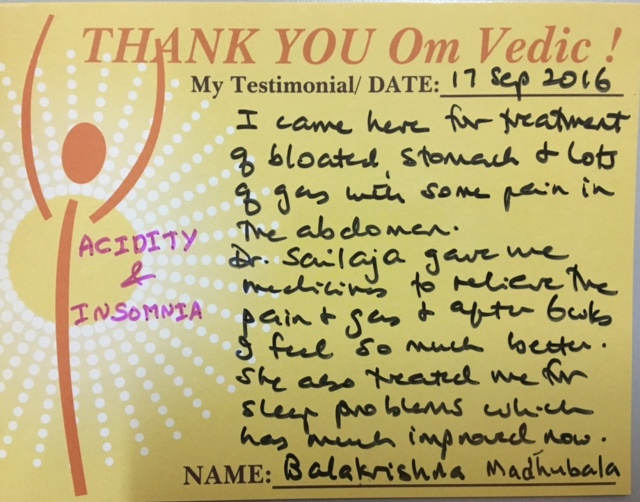 THANK YOU Om Vedic !
My Testimonial/ DATE: 17 Sep 2016
I came here for treatment
of bloated stomach & lots
of gas with some pain in
the abdomen.
Dr. Sailaja gave me
medicines to relieve the
pain & gas & after 6wks
I feel so much better.
She also treated me for
sleep problems which
has much improved now.
ACIDITY
&
INSOMNIA
NAME: Balakrishna Madhubala